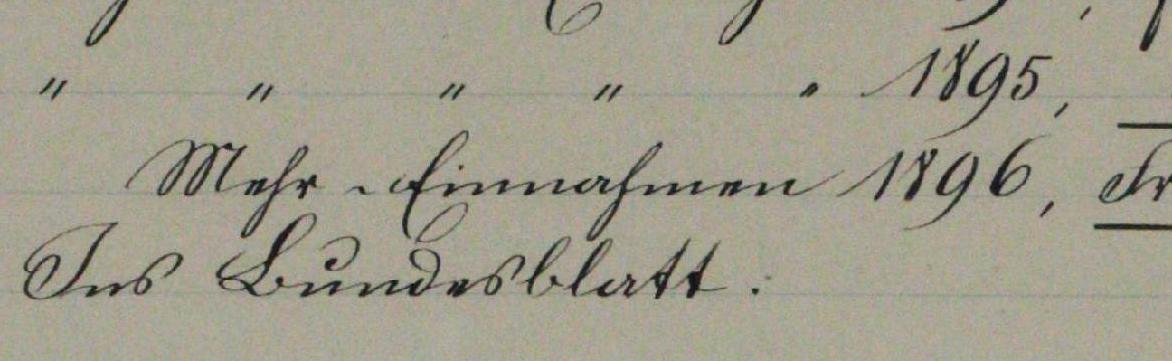 " " " " " 1895,
Mehr-Einnahmen 1896, Fr
Ins Bundesblatt.